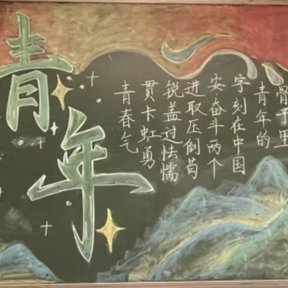 青年
青春气
贯长虹勇
锐盖过怯懦
进取压倒苟
安奋斗两个
字刻在中国
青年的
骨子里